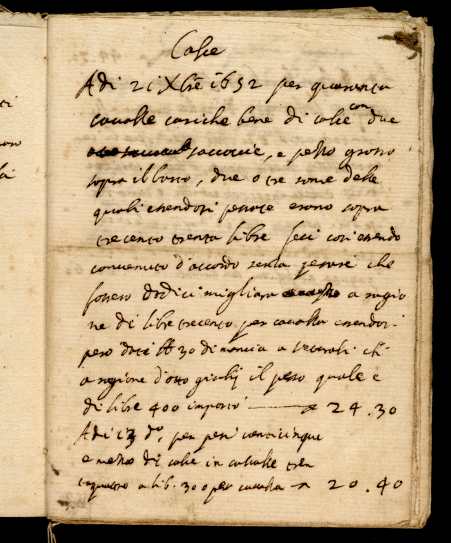 Calce
Adi 21 Xbre 1652 per quaranta
cavalle cariche bene di calce con due
saccocie, e pezzo grosso
sopra il basto, due o tre some delle
quali essendosi pesate erano sopra
trecento trenta libre feci così essendo
convenuto d'accordo senza pesare che
fossero dodici migliara a ragio
ne di libre trecento per cavalla essendosi
però dati 30 di mancia a vetturali che
a ragione d'otto giulij il peso quale è
di libre 400 importò 24.30
Adi 23 do, per pesi venticinque
e mezzo di calce in cavalle tren
taquattro a lib. 300 per cavalla 20.40